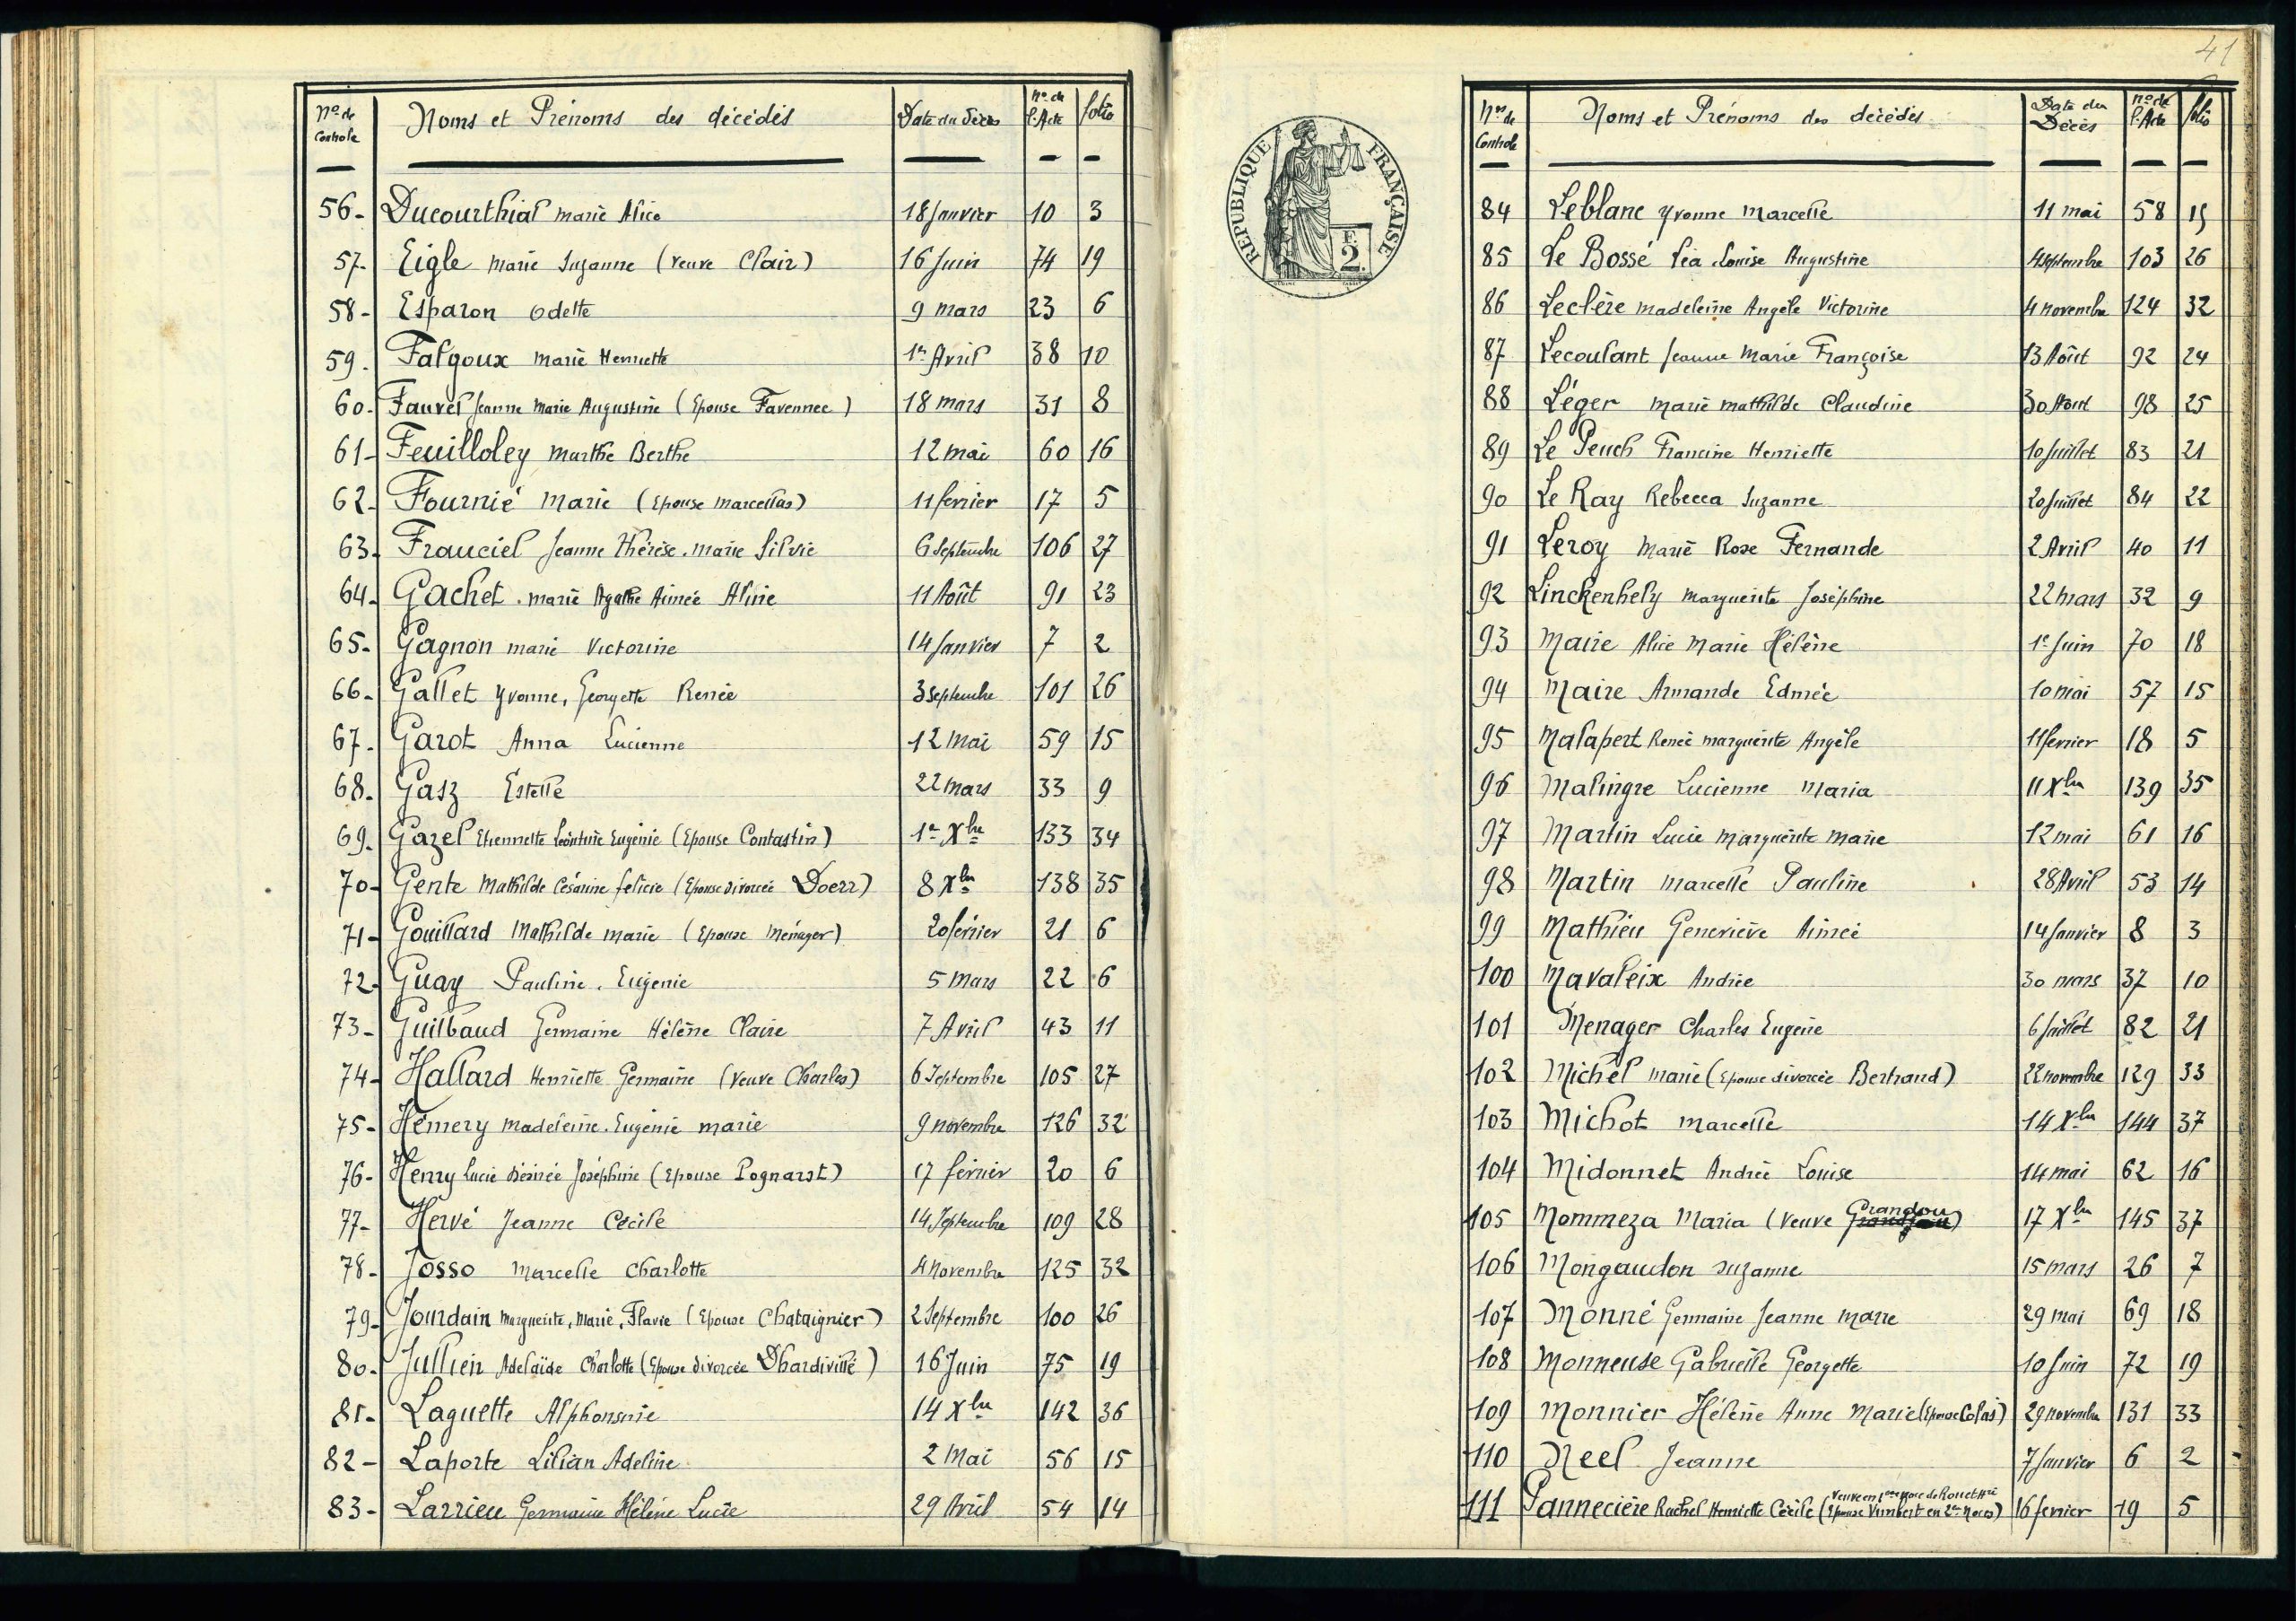 Nos de Controle Noms et Prénoms des décédés Date du Décès No de l'Acte folio
56- Ducourthial Marie Alice 18 Janvier 10 3
57- Eigle Marie Suzanne (Veuve Clair) 16 Juin 74 19
58- Esparon Odette 9 mars 23 6
59. Falgoux Marie Henriette 1er Avril 38 10
60- Fauvel Jeanne Marie Augustine (Epouse Favennec) 18 mars 31 8
61- Feuilloley Marthe Berthe 12 mai 60 16
62- Fournié Marie (Epouse Marcellas) 11 fevrier 17 5
63- Franciel Jeanne Thérèse. Marie Silvie 6 Septembre 106 27
64- Gachet. Marie Agathe Aimée Aline 11 Août 91 23
65- Gagnon marie Victorine 14 Janvier 7 2
66- Gallet Yvonne, Georgette Renée 3 Septembre 101 26
67- Garot Anna Lucienne 12 Mai 59 15
68. Gasz Estelle 22 Mars 33 9
69. Gazel Etiennette Léontine Eugénie (Epouse Contastin) 1er Xbre 133 34
70- Gente Mathilde Césarine felicie (Epouse divorcée Doerr) 8 Xbre 138 35
71- Gouillard Mathilde Marie (Epouse Ménager) 20 février 21 6
72- Guay Pauline. Eugénie 5 Mars 22 6
73- Guilbaud Germaine Hélène Claire 7 Avril 43 11
74- Hallard Henriette Germaine (Veuve Charles) 6 Septembre 105 27
75- Hémery Madeleine. Eugénie marie 9 novembre 126 32
76- Henry Lucie Désirée Joséphine (Epouse Pognarst) 17 février 20 6
77- Hervé Jeanne Cécile 14 Septembre 109 28
78- Josso Marcelle Charlotte 4 Novembre 125 32
79- Jourdain Marguerite, Marie, Flavie (Epouse Chataignier) 2 Septembre 100 26
80- Jullien Adelaïde Charlotte (Epouse divorcée Dhardivillé) 16 Juin 75 19
81- Laguette Alphonsine 14 Xbre 142 36
82- Laporte Lilian Adeline 2 Mai 56 15
83- Larrieu Germaine Hélène Lucie 29 Avril 54 14
41
RÉPUBLIQUE FRANÇAISE
F.
2.
Nos de Controle Noms et Prénoms des décédés Date du Décès No de l'Acte folio
84 Leblanc Yvonne Marcelle 11 mai 58 15
85 Le Bossé Léa Louise Augustine 4 septembre 103 26
86 Leclère Madeleine Angèle Victorine 4 novembre 124 32
87 Lecoulant Jeanne Marie Françoise 13 Août 92 24
88 Léger Marie Mathilde Claudine 30 Août 98 25
89 Le Peuch Francine Henriette 10 Juillet 83 21
90 Le Ray Rebecca Suzanne 20 Juillet 84 22
91 Leroy Marie Rose Fernande 2 Avril 40 11
92 Linckenhely Marguerite Joséphine 22 mars 32 9
93 Maire Alice Marie Hélène 1er Juin 70 18
94 Maire Armande Edmée 10 mai 57 15
95 Malapert Renée Marguerite Angèle 11 fevrier 18 5
96 Malingre Lucienne Maria 11 Xbre 139 35
97 Martin Lucie Marguerite Marie 12 mai 61 16
98 Martin Marcelle Pauline 28 Avril 53 14
99 Mathieu Geneviève Aimée 14 Janvier 8 3
100 Mavaleix Andrée 30 mars 37 10
101 Menager Charles Eugène 6 Juillet 82 21
102 Michel Marie (Epouse divorcée Bertrand) 22 novembre 129 33
103 Michot Marcelle 14 Xbre 144 37
104 Midonnet Andrée Louise 14 mai 62 16
105 Mommeza Maria (Veuve Grandou) 17 Xbre 145 37
106 Mongaudon Suzanne 15 mars 26 7
107 Monné Germaine Jeanne Marie 29 mai 69 18
108 Monneuse Gabrielle Georgette 10 Juin 72 19
109 Monnier Hélène Anne Marie (Epouse Colas) 29 novembre 131 33
110 Neel Jeanne 7 Janvier 6 2
111 Pannecière Rachel Henriette Cécile (Veuve en 1ere Noce de Rouet Hri Epouse Vimbert en 2e Noces) 16 fevrier 19 5